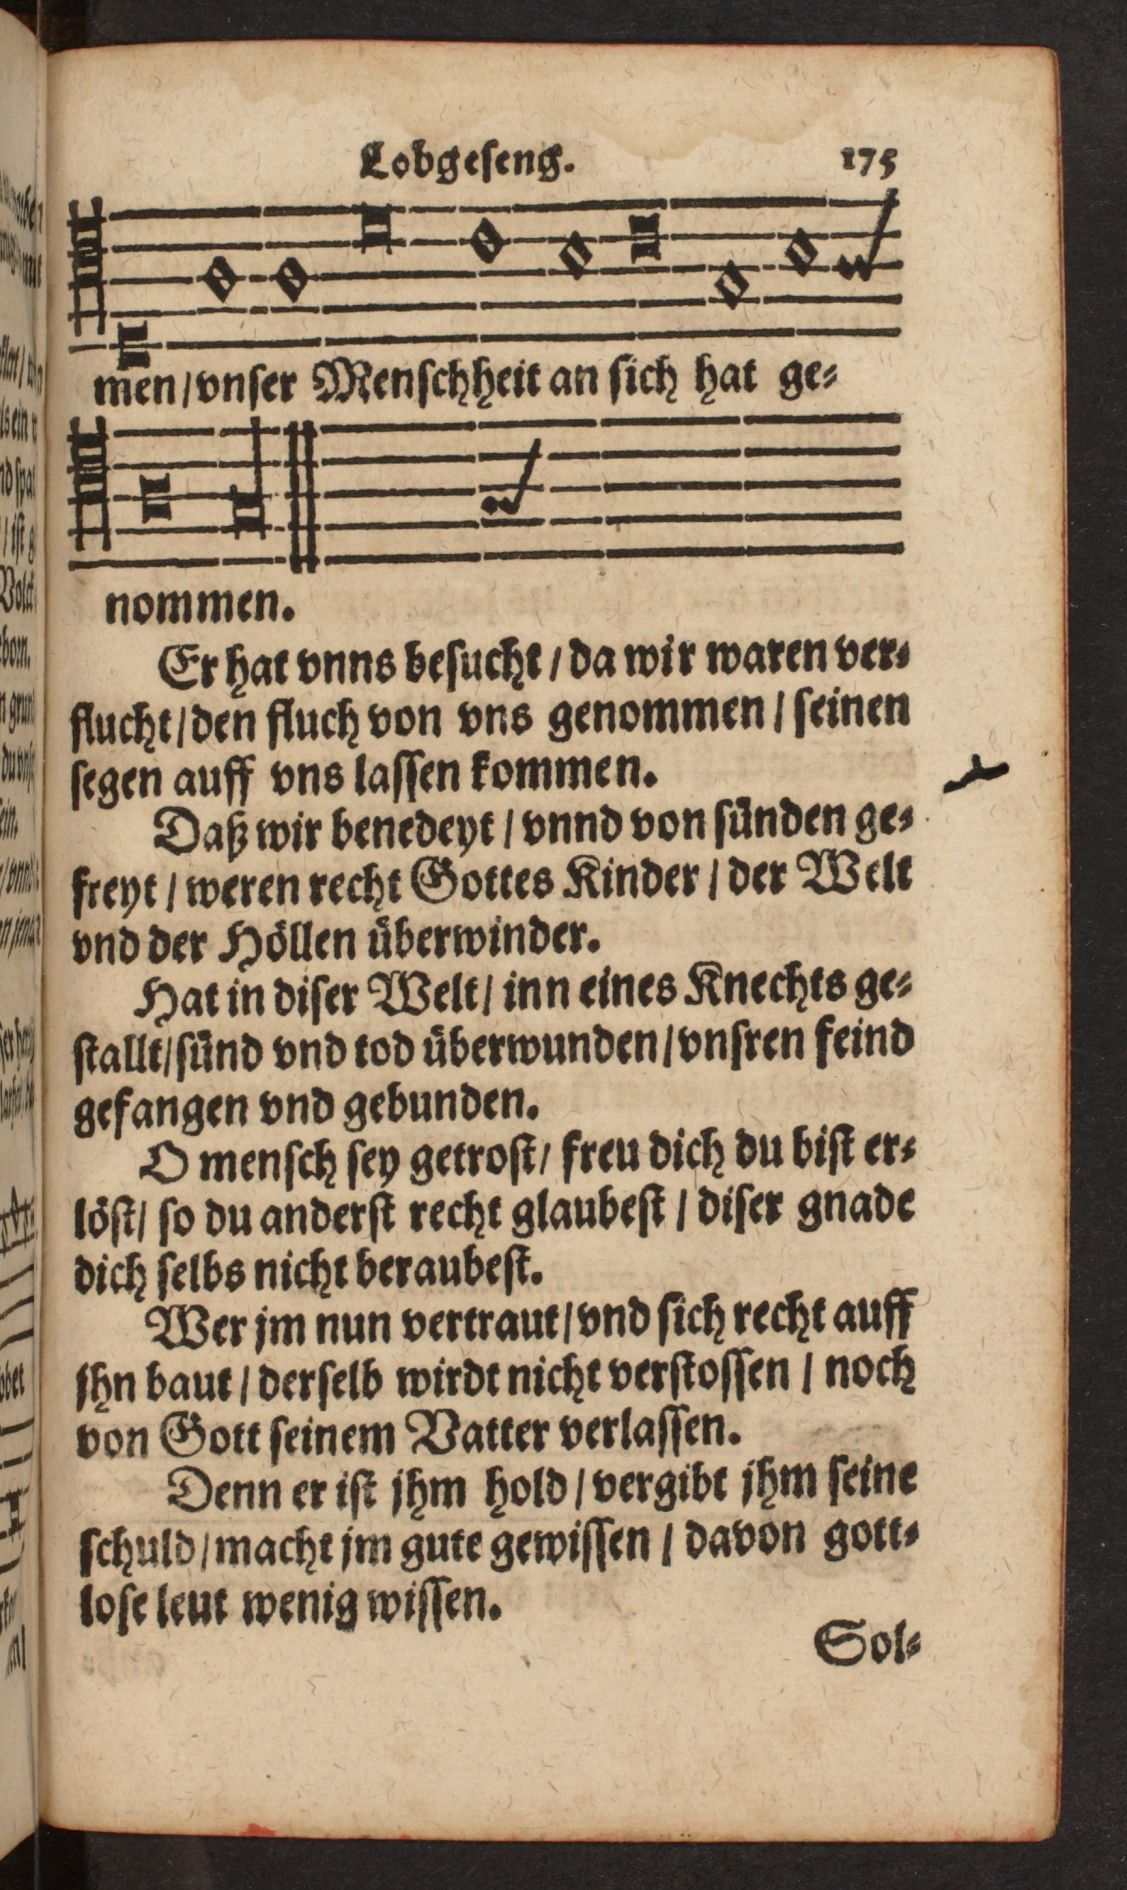 Lobgeseng. 175
men/vnser Menschheit an sich hat ge-
nommen.
Er hat vnns besucht/da wir waren ver-
flucht/den fluch von vns genommen/seinen
segen auff vns lassen kommen.
Daß wir benedeyt/vnnd von sünden ge-
freyt/weren recht Gottes Kinder/der Welt
vnd der Höllen überwinder.
Hat in diser Welt/inn eines Knechts ge-
stallt/sünd vnd tod überwunden/vnsren feind
gefangen vnd gebunden.
O mensch sey getrost/freu dich du bist er-
löst/so du anderst recht glaubest/diser gnade
dich selbs nicht beraubest.
Wer jm nun vertraut/vnd sich recht auff
jhn baut/derselb wirdt nicht verstossen/noch
von Gott seinem Vatter verlassen.
Denn er ist jhm hold/vergibt jhm seine
schuld/macht jm gute gewissen/davon gott-
lose leut wenig wissen.
Sol-